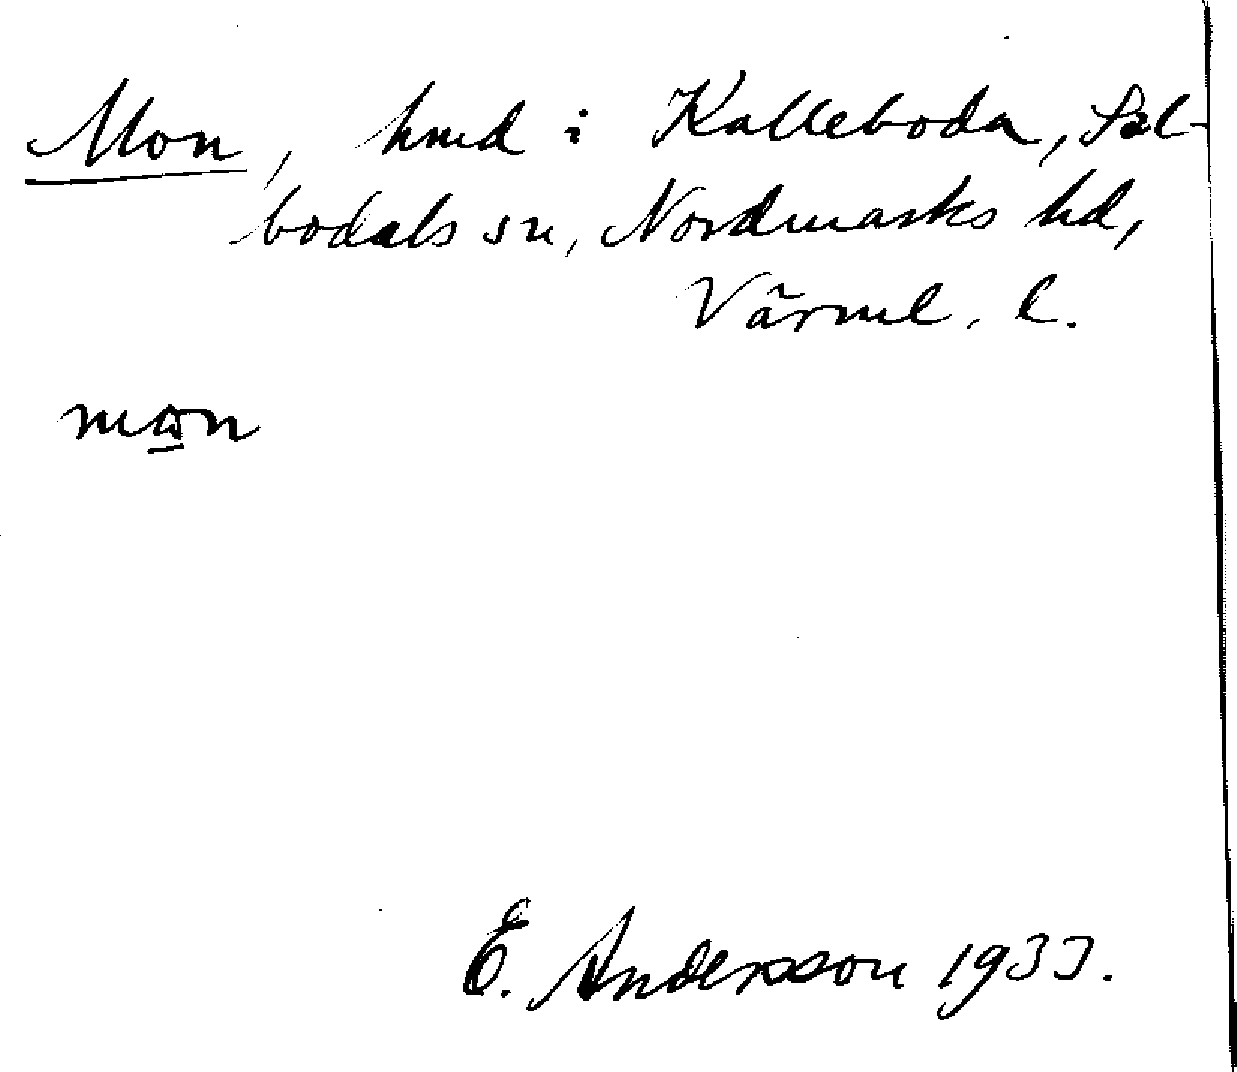 Mon, hmd i Kalleboda, Sil-
bodals sn, Nordmarks hd,
Värml. l.
E. Andersson 1933.